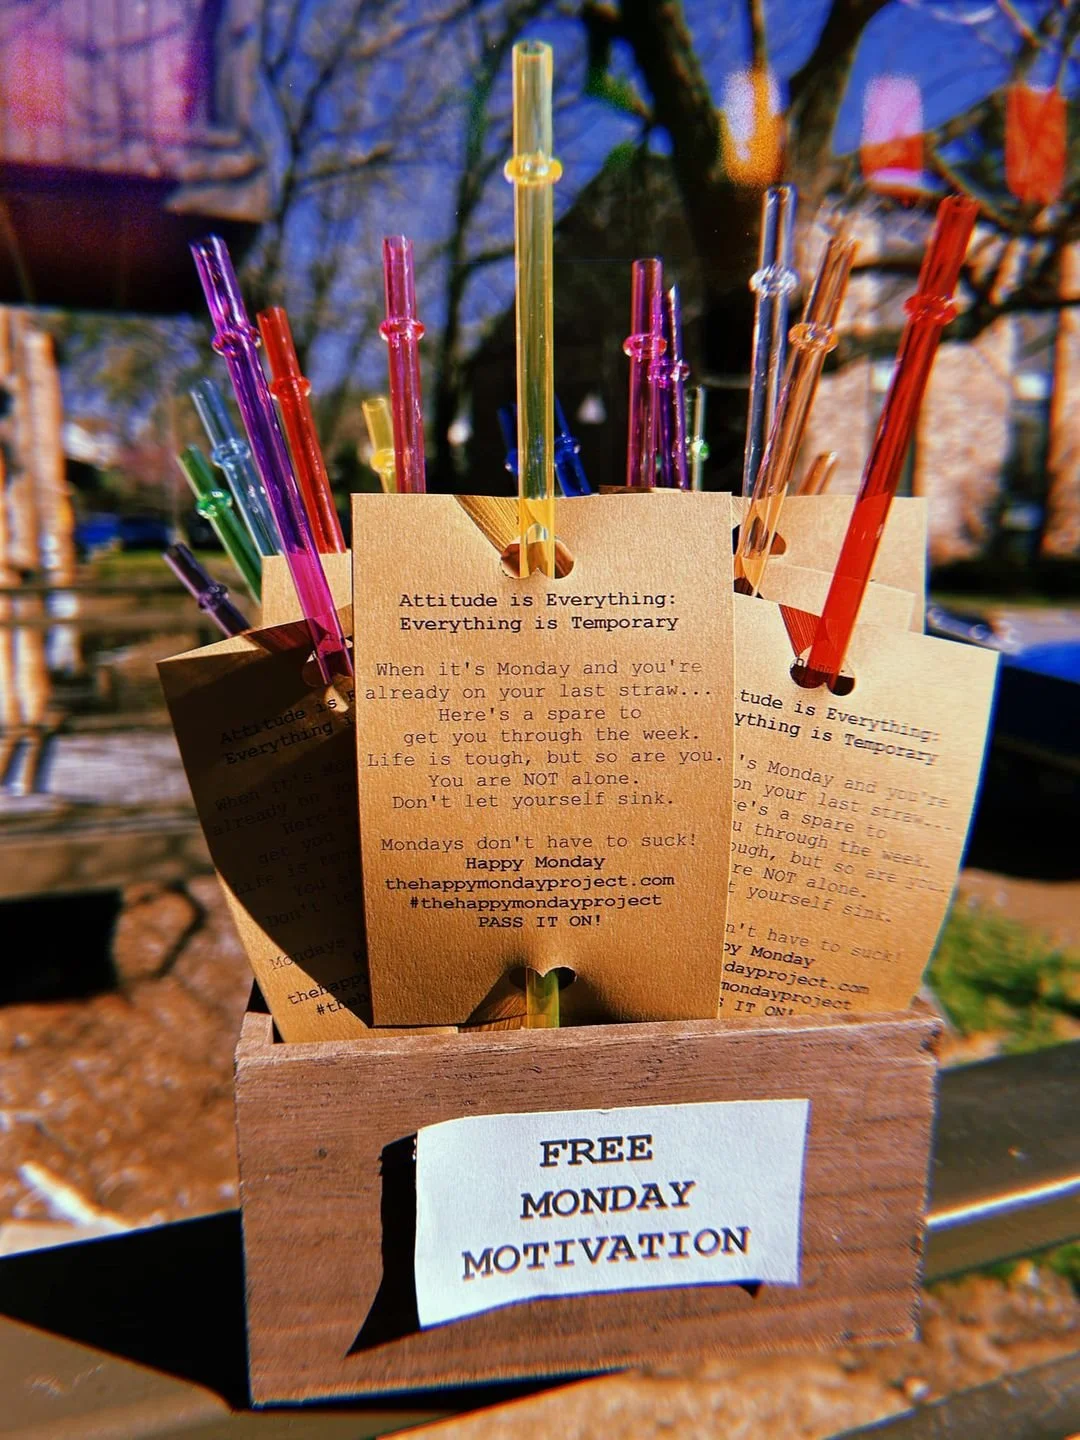 Attitude is Everything:
Everything is Temporary
When it's Monday and you're
already on your last straw...
Here's a spare to
get you through the week.
Life is tough, but so are you.
You are NOT alone.
Don't let yourself sink.
Mondays don't have to suck!
Happy Monday
thehappymondayproject.com
#thehappymondayproject
PASS IT ON!
Attitude is
Everything
When it's Mon
already on yo
Here's
get you
Life is
you a
Don't le
Mondays
thehappy
#theh
tude is Everything:
ything is Temporary
's Monday and you're
on your last straw...
e's a spare to
u through the week.
ough, but so are you.
re NOT alone.
t yourself sink.
n't have to suck!
py Monday
dayproject.com
mondayproject
S IT ON!
FREE
MONDAY
MOTIVATION